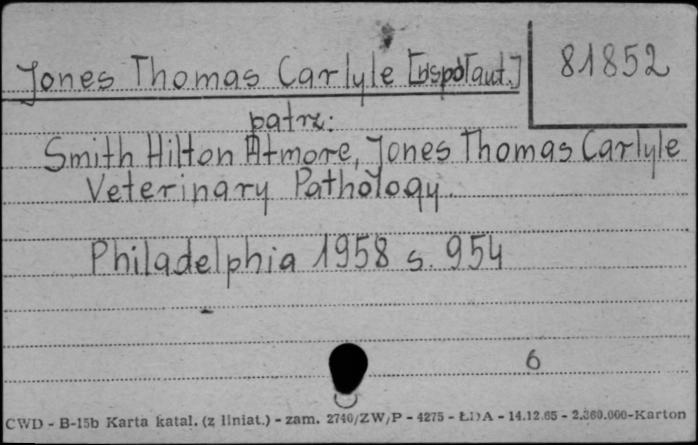 Jones Thomas Carlyle [współaut.]
81852
patrz:
Smith Hilton Atmore, Jones Thomas Carlyle
Veterinary Pathology.
Philadelphia 1958 s. 954
6
CWD - B-15b Karta katal. (z liniat.) - zam. 2740/ZW/P - 4275 - ŁDA - 14.12.65 - 2.360.000-Karton